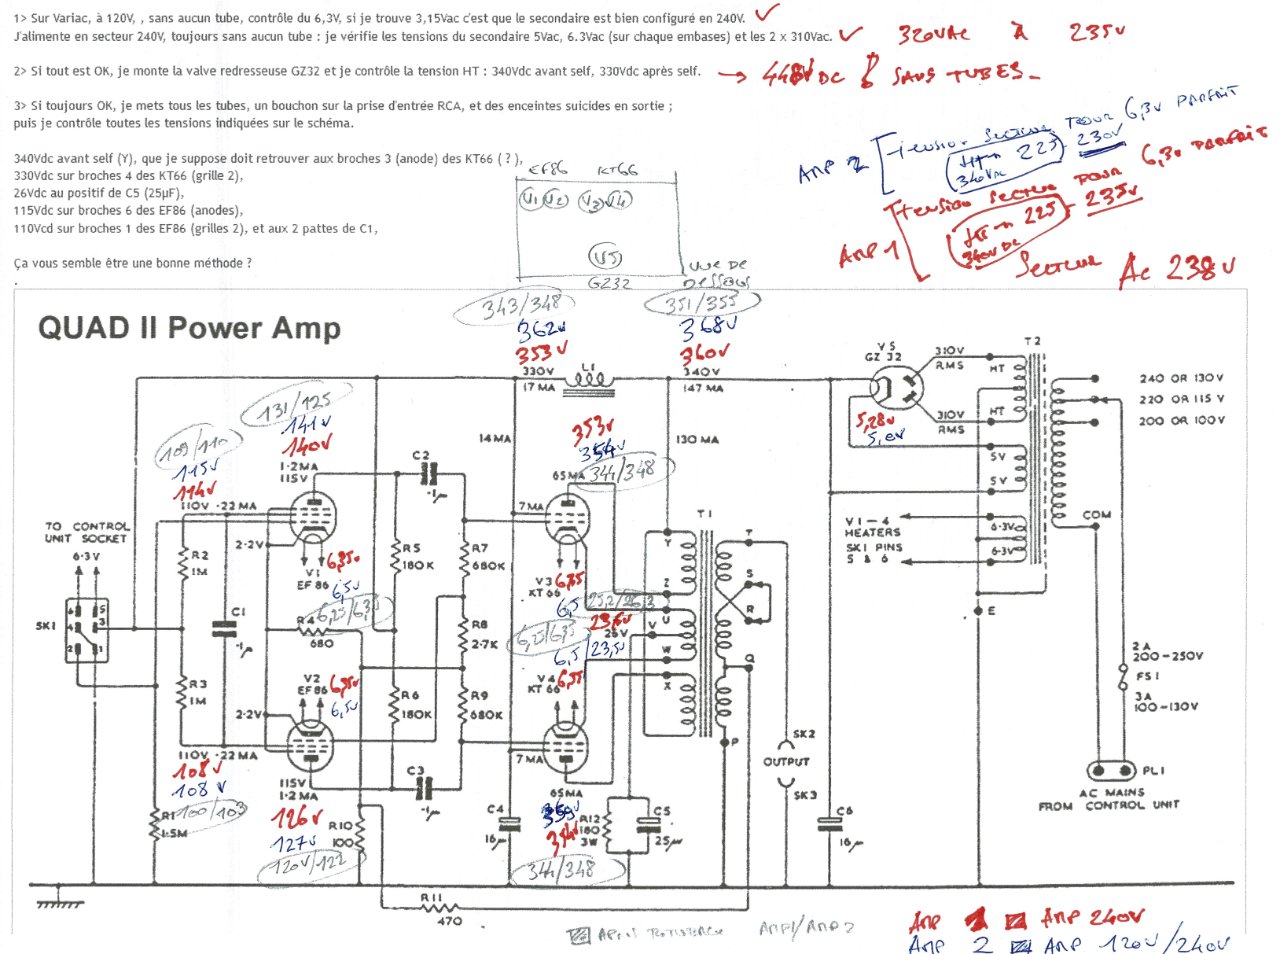 1> Sur Variac, à 120V, , sans aucun tube, contrôle du 6,3V, si je trouve 3,15Vac c'est que le secondaire est bien configuré en 240V.
J'alimente en secteur 240V, toujours sans aucun tube : je vérifie les tensions du secondaire 5Vac, 6.3Vac (sur chaque embases) et les 2 x 310Vac.
320VAC À 235V
2> Si tout est OK, je monte la valve redresseuse GZ32 et je contrôle la tension HT : 340Vdc avant self, 330Vdc après self.
→ 448V DC SANS TUBES_
3> Si toujours OK, je mets tous les tubes, un bouchon sur la prise d'entrée RCA, et des enceintes suicides en sortie ;
puis je contrôle toutes les tensions indiquées sur le schéma.
340Vdc avant self (Y), que je suppose doit retrouver aux broches 3 (anode) des KT66 ( ? ),
330Vdc sur broches 4 des KT66 (grille 2),
26Vdc au positif de C5 (25µF),
115Vdc sur broches 6 des EF86 (anodes),
110Vcd sur broches 1 des EF86 (grilles 2), et aux 2 pattes de C1,
Ça vous semble être une bonne méthode ?
EF86 KT66
V1 V2 V3 V4
V5
GZ32
VUE DE
DESSOUS
AMP 2
Tension secteur pour 6,3V PARFAIT
HT → 225 - 230V
340Vdc
AMP 1
Tension secteur pour 6,3V PARFAIT
HT → 225 - 235V
340V DC
Secteur Ac 238V
QUAD II Power Amp
343/348
362V
353V
330V
17 MA
L1
351/355
368V
360V
340V
147 MA
V5
GZ 32
5,28V
5,0V
310V
RMS
310V
RMS
HT
HT
T2
240 OR 130 V
220 OR 115 V
200 OR 100V
5V
5V
6·3V
6·3V
V1–4
HEATERS
SK1 PINS
5 & 6
COM
E
2A
200-250V
FS1
3A
100-130V
PL1
AC MAINS
FROM CONTROL UNIT
131/125
141V
140V
1·2MA
115V
109/110
115V
114V
110V ·22 MA
2·2V
TO CONTROL
UNIT SOCKET
6·3V
SK1
6 5
4 3
2 1
R2
1M
R3
1M
C1
·1µ
V1
EF86
6,35V
6,5V
6,25/6,3V
R4
680
V2
EF86
6,35V
6,5V
2·2V
110V ·22 MA
108V
108V
100/103
R1
1·5M
115V
1·2 MA
126V
127V
120V/122
C2
·1µ
R5
180K
R6
180K
R7
680K
R8
2·7K
R9
680K
C3
·1µ
R10
100
R11
470
14MA
353V
354V
344/348
65MA
7MA
V3
KT 66
6,35
6,5
6,25/6,35
6,5
V4
KT 66
6,35
7MA
65MA
355V
354V
344/348
130 MA
25,2/26,3
23,6V
26V
23,5V
Y
Z
U
V
W
X
T1
T
S
R
Q
P
SK2
OUTPUT
SK3
C4
16µ
R12
180
3W
C5
25µ
C6
16µ
AMP1/AMP2
AMP 1 AMP 240V
AMP 2 AMP 120V/240V